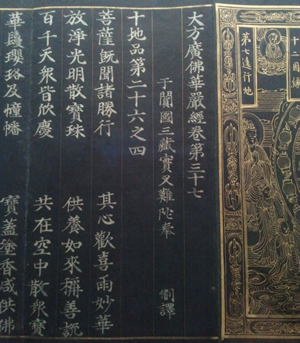 第七遠行地
大方廣佛華嚴經卷第三十七
于闐國三藏實叉難陀奉 制譯
十地品第二十六之四
菩薩旣聞諸勝行 其心歡喜雨妙華
放淨光明散寶珠 供養如來稱善說
百千天衆皆欣慶 共在空中散衆寶
華鬘瓔珞及幢幡 寶蓋塗香咸供佛